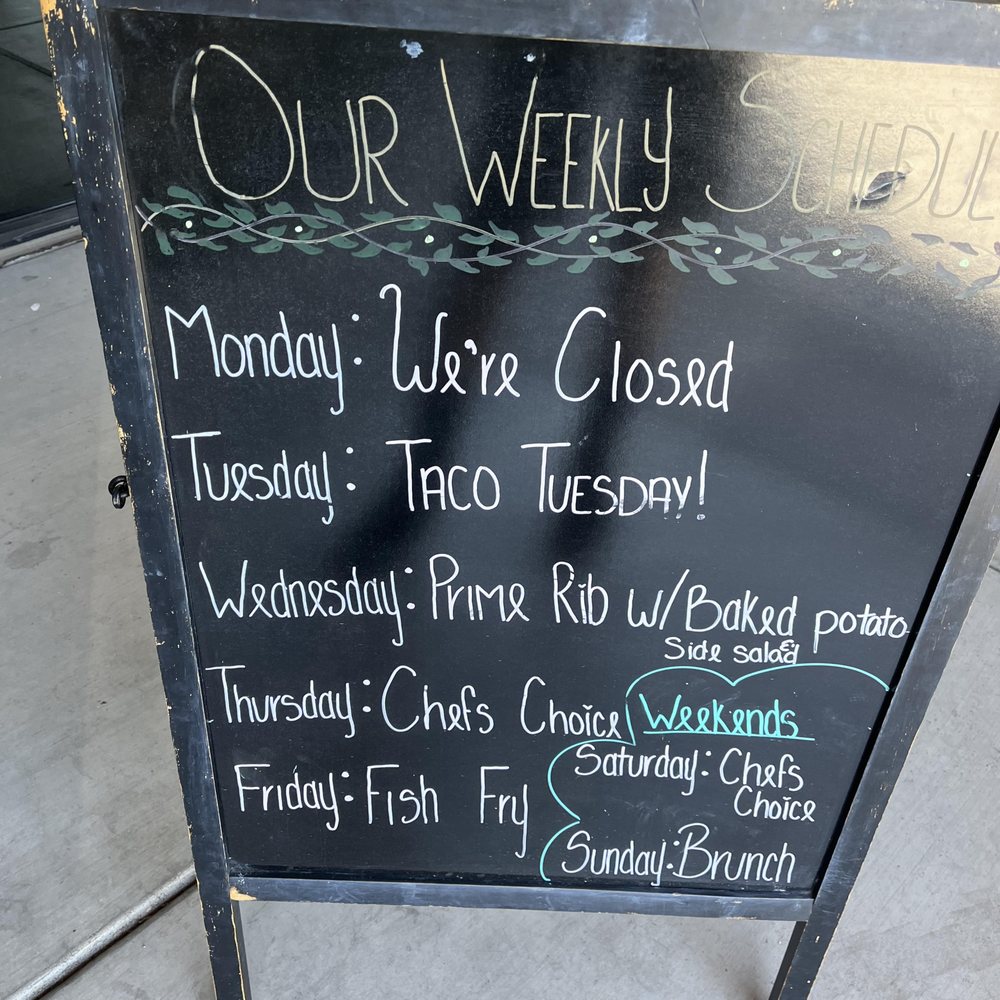 OUR WEEKLY SCHEDUL
Monday: We're Closed
Tuesday: TACO TUESDAY!
Wednesday: Prime Rib w/ Baked potato
& Side salad
Thursday: Chefs Choice
Friday: Fish Fry
Weekends
Saturday: Chefs
Choice
Sunday: Brunch